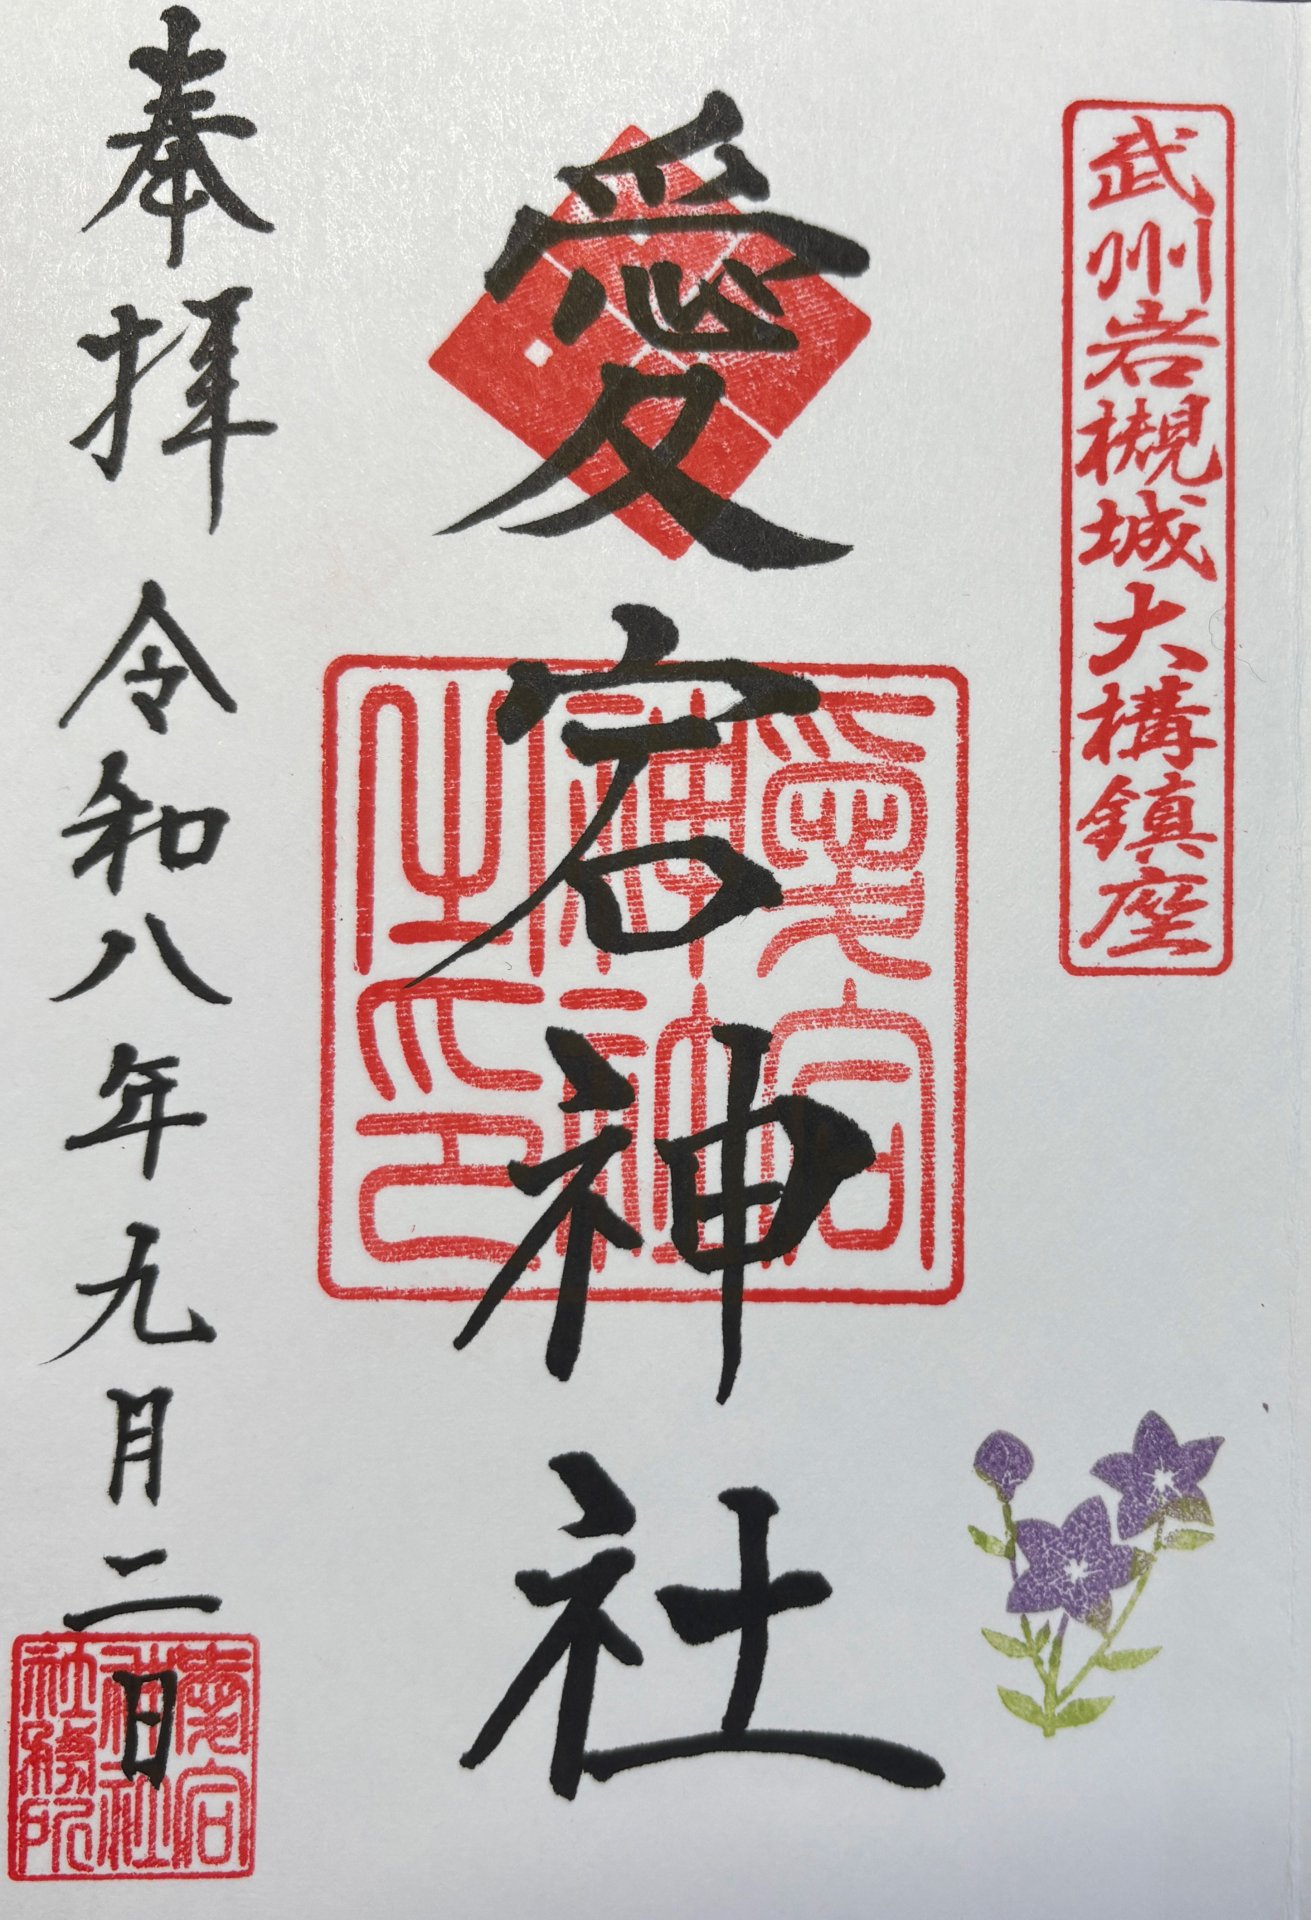 武州岩槻城大構鎮座
愛宕神社
愛宕
神社
之印
奉拝
令和八年九月二日
愛宕
神社
社務所